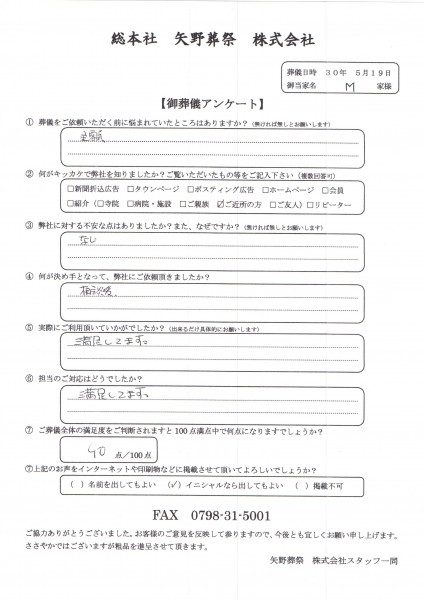 総本社 矢野葬祭 株式会社
葬儀日時 30年 5月19日
御当家名 M 家様
【御葬儀アンケート】
① 葬儀をご依頼いただく前に悩まれていたところはありますか?(無ければ無しとお願いします)
金額
② 何がキッカケで弊社を知りましたか?ご覧いただいたもの等をご記入下さい(複数回答可)
□新聞折込広告 □タウンページ □ポスティング広告 □ホームページ □会員
□紹介(□寺院 □病院・施設 □ご親族 ☑ご近所の方 □ご友人)□リピーター
③ 弊社に対する不安な点はありましたか?また、なぜですか?(無ければ無しとお願いします)
なし
④ 何が決め手となって、弊社にご依頼頂きましたか?
相談後、
⑤ 実際にご利用頂いていかがでしたか?(出来るだけ具体的にお願いします)
満足してます。
⑥ 担当のご対応はどうでしたか?
満足してます。
⑦ ご葬儀全体の満足度をご判断されますと100点満点中で何点になりますでしょうか?
90 点/100点
⑦上記のお声をインターネットや印刷物などに掲載させて頂いてよろしいでしょうか?
( )名前を出してもよい (✓)イニシャルなら出してもよい ( )掲載不可
FAX 0798-31-5001
ご協力ありがとうございました。お客様のご意見を反映して参りますので、今後とも宜しくお願い申し上げます。
ささやかではございますが粗品を進呈させて頂きます。
矢野葬祭 株式会社スタッフ一同